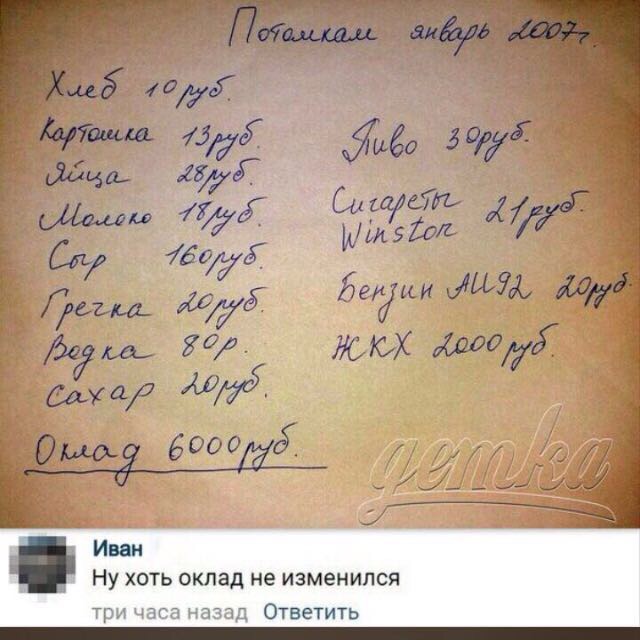 Потомкам январь 2007г.
Хлеб 10руб.
Картошка 13руб.
Яйца 28руб.
Молоко 18руб.
Сыр 160руб.
Гречка 20руб.
Водка 80р.
Сахар 20руб.
Оклад 6000руб.
Пиво 30руб.
Сигареты
Winston 21руб.
Бензин АИ92 20руб.
ЖКХ 2000руб.
детка
Иван
Ну хоть оклад не изменился
три часа назад Ответить